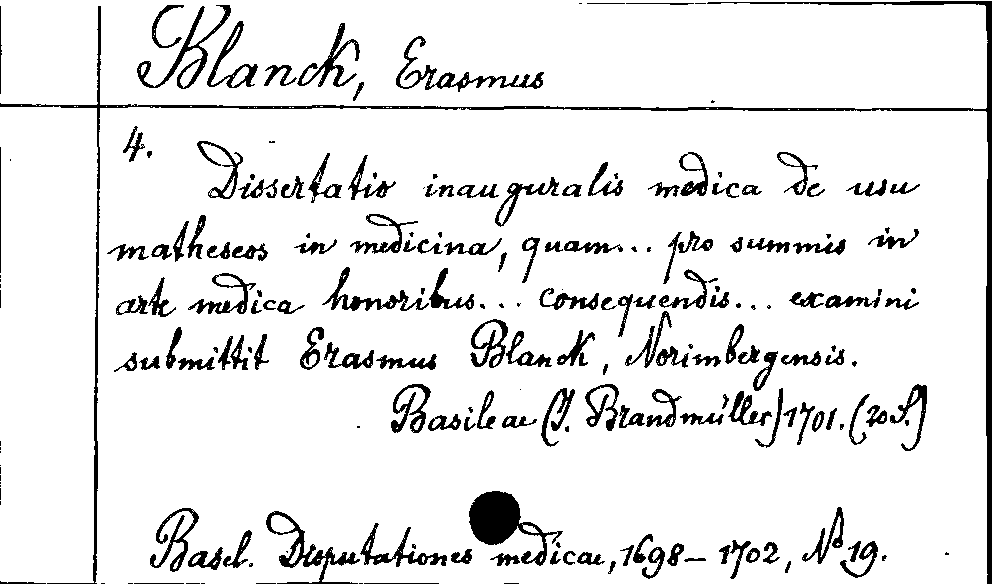 Blanck, Erasmus
4.
Dissertatio inauguralis medica de usu
matheseos in medicina, quam... pro summis in
arte medica honoribus... consequendis... examini
submittit Erasmus Blanck, Norimbergensis.
Basileae (J. Brandmüller) 1701. (20 S.)
Basel. Disputationes medicae, 1698-1702, No 19.